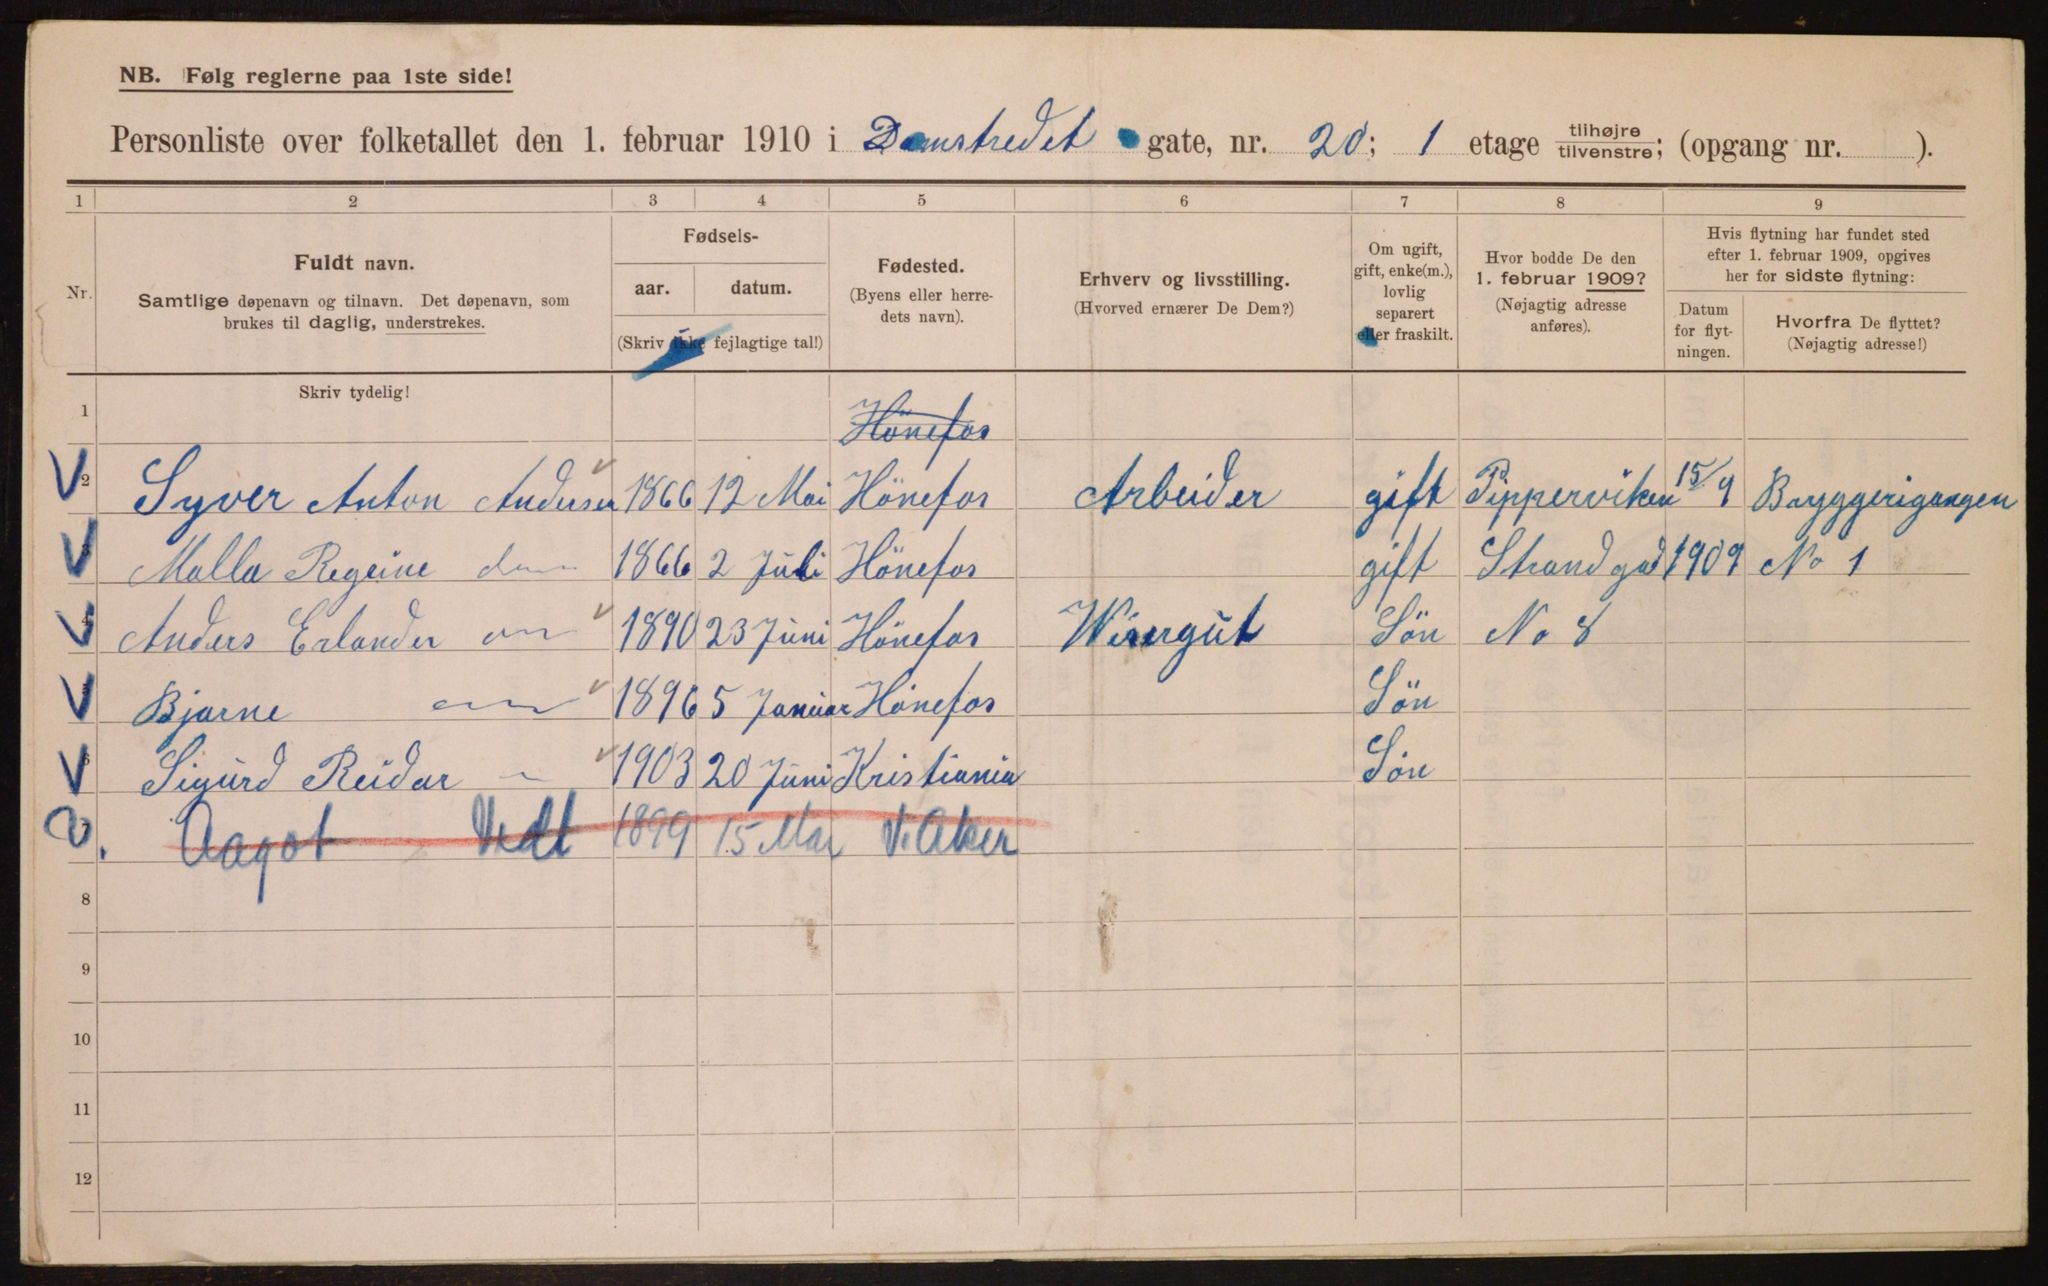 NB. Følg reglerne paa 1ste side!
Personliste over folketallet den 1. februar 1910 i Damstredet gate, nr. 20; 1 etage tilhøjre tilvenstre; (opgang nr. ).
1 2 3 4 5 6 7 8 9
Nr.
Fuldt navn.
Samtlige døpenavn og tilnavn. Det døpenavn, som
brukes til daglig, understrekes.
Fødsels-
aar. datum.
(Skriv ikke fejlagtige tal!)
Fødested.
(Byens eller herre-
dets navn).
Erhverv og livsstilling.
(Hvorved ernærer De Dem?)
Om ugift,
gift, enke(m.),
lovlig
separert
eller fraskilt.
Hvor bodde De den
1. februar 1909?
(Nøjagtig adresse
anføres).
Hvis flytning har fundet sted
efter 1. februar 1909, opgives
her for sidste flytning:
Datum
for flyt-
ningen.
Hvorfra De flyttet?
(Nøjagtig adresse!)
Skriv tydelig!
1 Hönefos
2 Syver Anton Andersen 1866 12 Mai Hönefos Arbeider gift Pipperviken 15/9 Bryggerigangen
3 Malla Regine 1866 2 Juli Hönefos gift Strandgad 1909 No 1
4 Anders Erlander 1890 23 Juni Hönefos Visergut Sön No 8
5 Bjarne 1896 5 Januar Hönefos Sön
6 Sigurd Reidar 1903 20 Juni Kristiania Sön
7 Aagot 1899 15 Mar V. Aker
8
9
10
11
12